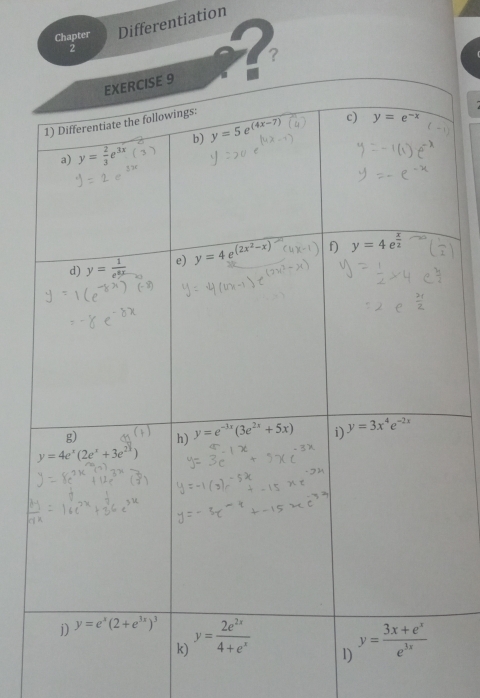 Chapter
2
Differentiation
???
EXERCISE 9
1) Differentiate the followings:
a) y = 2/3 e^{3x} (3)
y = 2 e^{3x}
b) y = 5 e^{(4x−7)} (4)
y = 20 e^{(4x−7)}
c) y = e^{−x} (−1)
y = −1(1) e^{−x}
y = − e^{−x}
d) y = 1/e^{8x}
y = 1(e^{−8x}) (−8)
= −8 e^{−8x}
e) y = 4 e^{(2x²−x)} (4x−1)
y = 4(4x−1) e^{(2x²−x)}
f) y = 4 e^{x/2} (1/2)
y = 1/2 × 4 e^{x/2}
= 2 e^{x/2}
g)
y = 4e^x(2e^x + 3e^{2x})
h) y = e^{−3x}(3e^{2x} + 5x)
y = 3e^{−1x} + 5xe^{−3x}
y = −1(3)e^{−3x} + −15xe^{−3x}
y = −3e^{−x} + −15xe^{−3x}
i) y = 3x⁴e^{−2x}
j) y = e^x(2 + e^{3x})³
k) y = 2e^{2x}/4 + e^x
l) y = 3x + e^x/e^{3x}